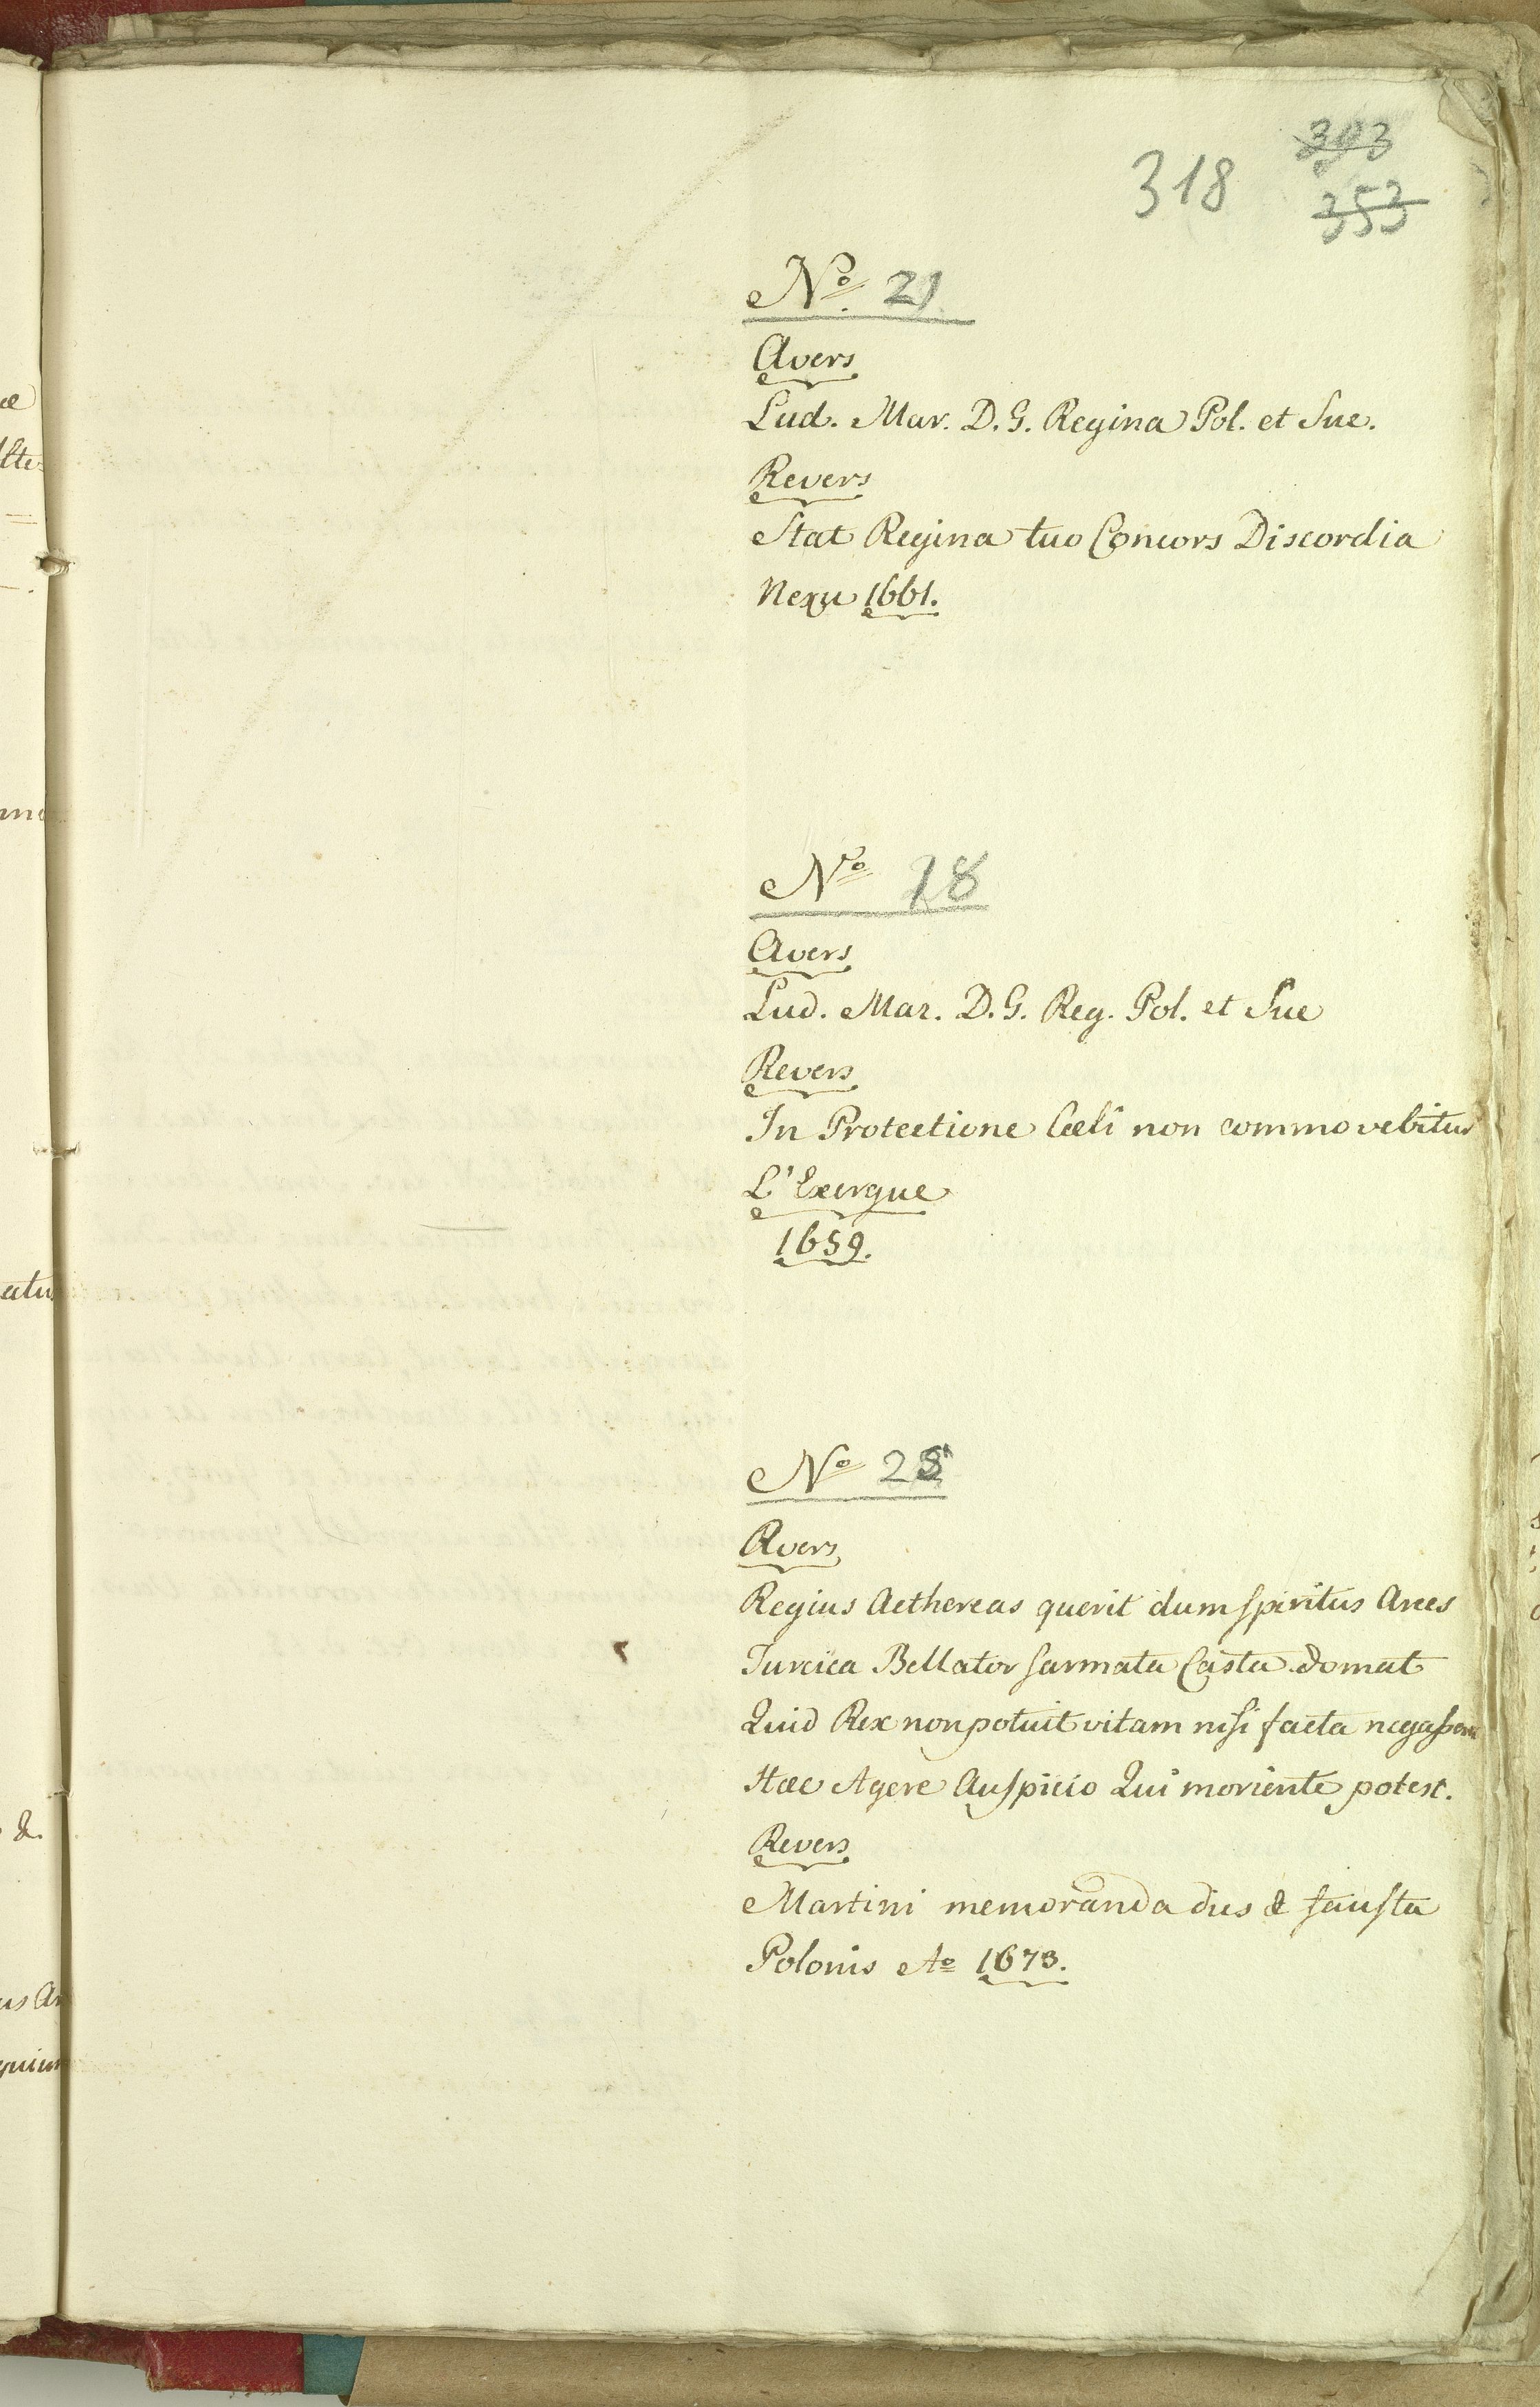 318
303
353
No. 21
Avers
Lud. Mar. D. G. Regina Pol. et Sue.
Revers
Stat Regina tuo Concors Discordia
Nexu 1661.
No 18
Avers
Lud. Mar. D. G. Reg. Pol. et Sue
Revers
In Protectione Cœli non commovebitur
L'Exergue
1659.
No 25
Avers
Regius Aethereas querit dum spiritus Arces
Turcica Bellator sarmata Casta domat
Quid Rex non potuit vitam nisi facta negassent
Hæc Agere Auspicio Qui moriente potest.
Revers
Martini memoranda dies & fausta
Polonis Ao 1673.